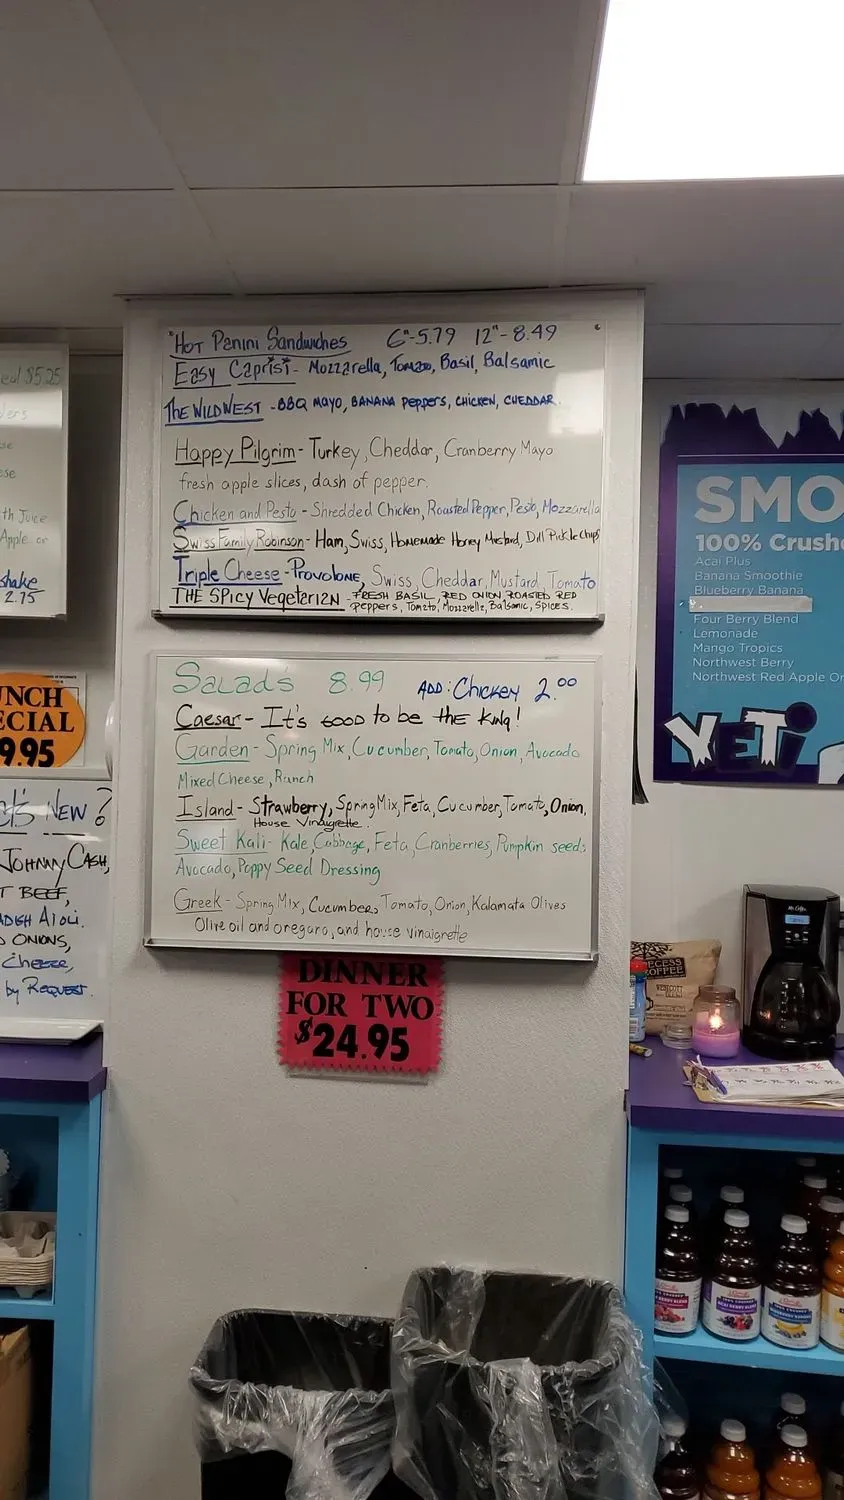 "Hot Panini Sandwiches 6"-5.79 12"-8.49
Easy Caprisi - Mozzarella, Tomato, Basil, Balsamic
The Wild West - BBQ Mayo, Banana Peppers, Chicken, Cheddar.
Happy Pilgrim - Turkey, Cheddar, Cranberry Mayo
fresh apple slices, dash of pepper.
Chicken and Pesto - Shredded Chicken, Roasted Pepper, Pesto, Mozzarella
Swiss Family Robinson - Ham, Swiss, Homemade Honey Mustard, Dill Pickle Chips
Triple Cheese - Provolone, Swiss, Cheddar, Mustard, Tomato
The Spicy Vegetarian - Fresh Basil, Red Onion Roasted Red
Peppers, Tomato, Mozzarella, Balsamic, Spices.
Salad's 8.99 Add: Chicken 2.00
Caesar - It's good to be the King!
Garden - Spring Mix, Cucumber, Tomato, Onion, Avocado
Mixed Cheese, Ranch
Island - Strawberry, Spring Mix, Feta, Cucumber, Tomato, Onion,
House Vinaigrette.
Sweet Kali - Kale, Cabbage, Feta, Cranberries, Pumpkin seeds
Avocado, Poppy Seed Dressing
Greek - Spring Mix, Cucumbers, Tomato, Onion, Kalamata Olives
Olive oil and oregano, and house vinaigrette
DINNER
FOR TWO
$24.95
$5.25
th Juice
Apple or
shake
2.75
UNCH
ECIAL
9.95
New?
Johnny Cash,
Beef,
Aioli.
Onions,
Cheese,
by Request.
SMO
100% Crush
Acai Plus
Banana Smoothie
Blueberry Banana
Four Berry Blend
Lemonade
Mango Tropics
Northwest Berry
Northwest Red Apple Or
YETi
Mr. Coffee
ECESS
COFFEE
ACAI BERRY BLEND